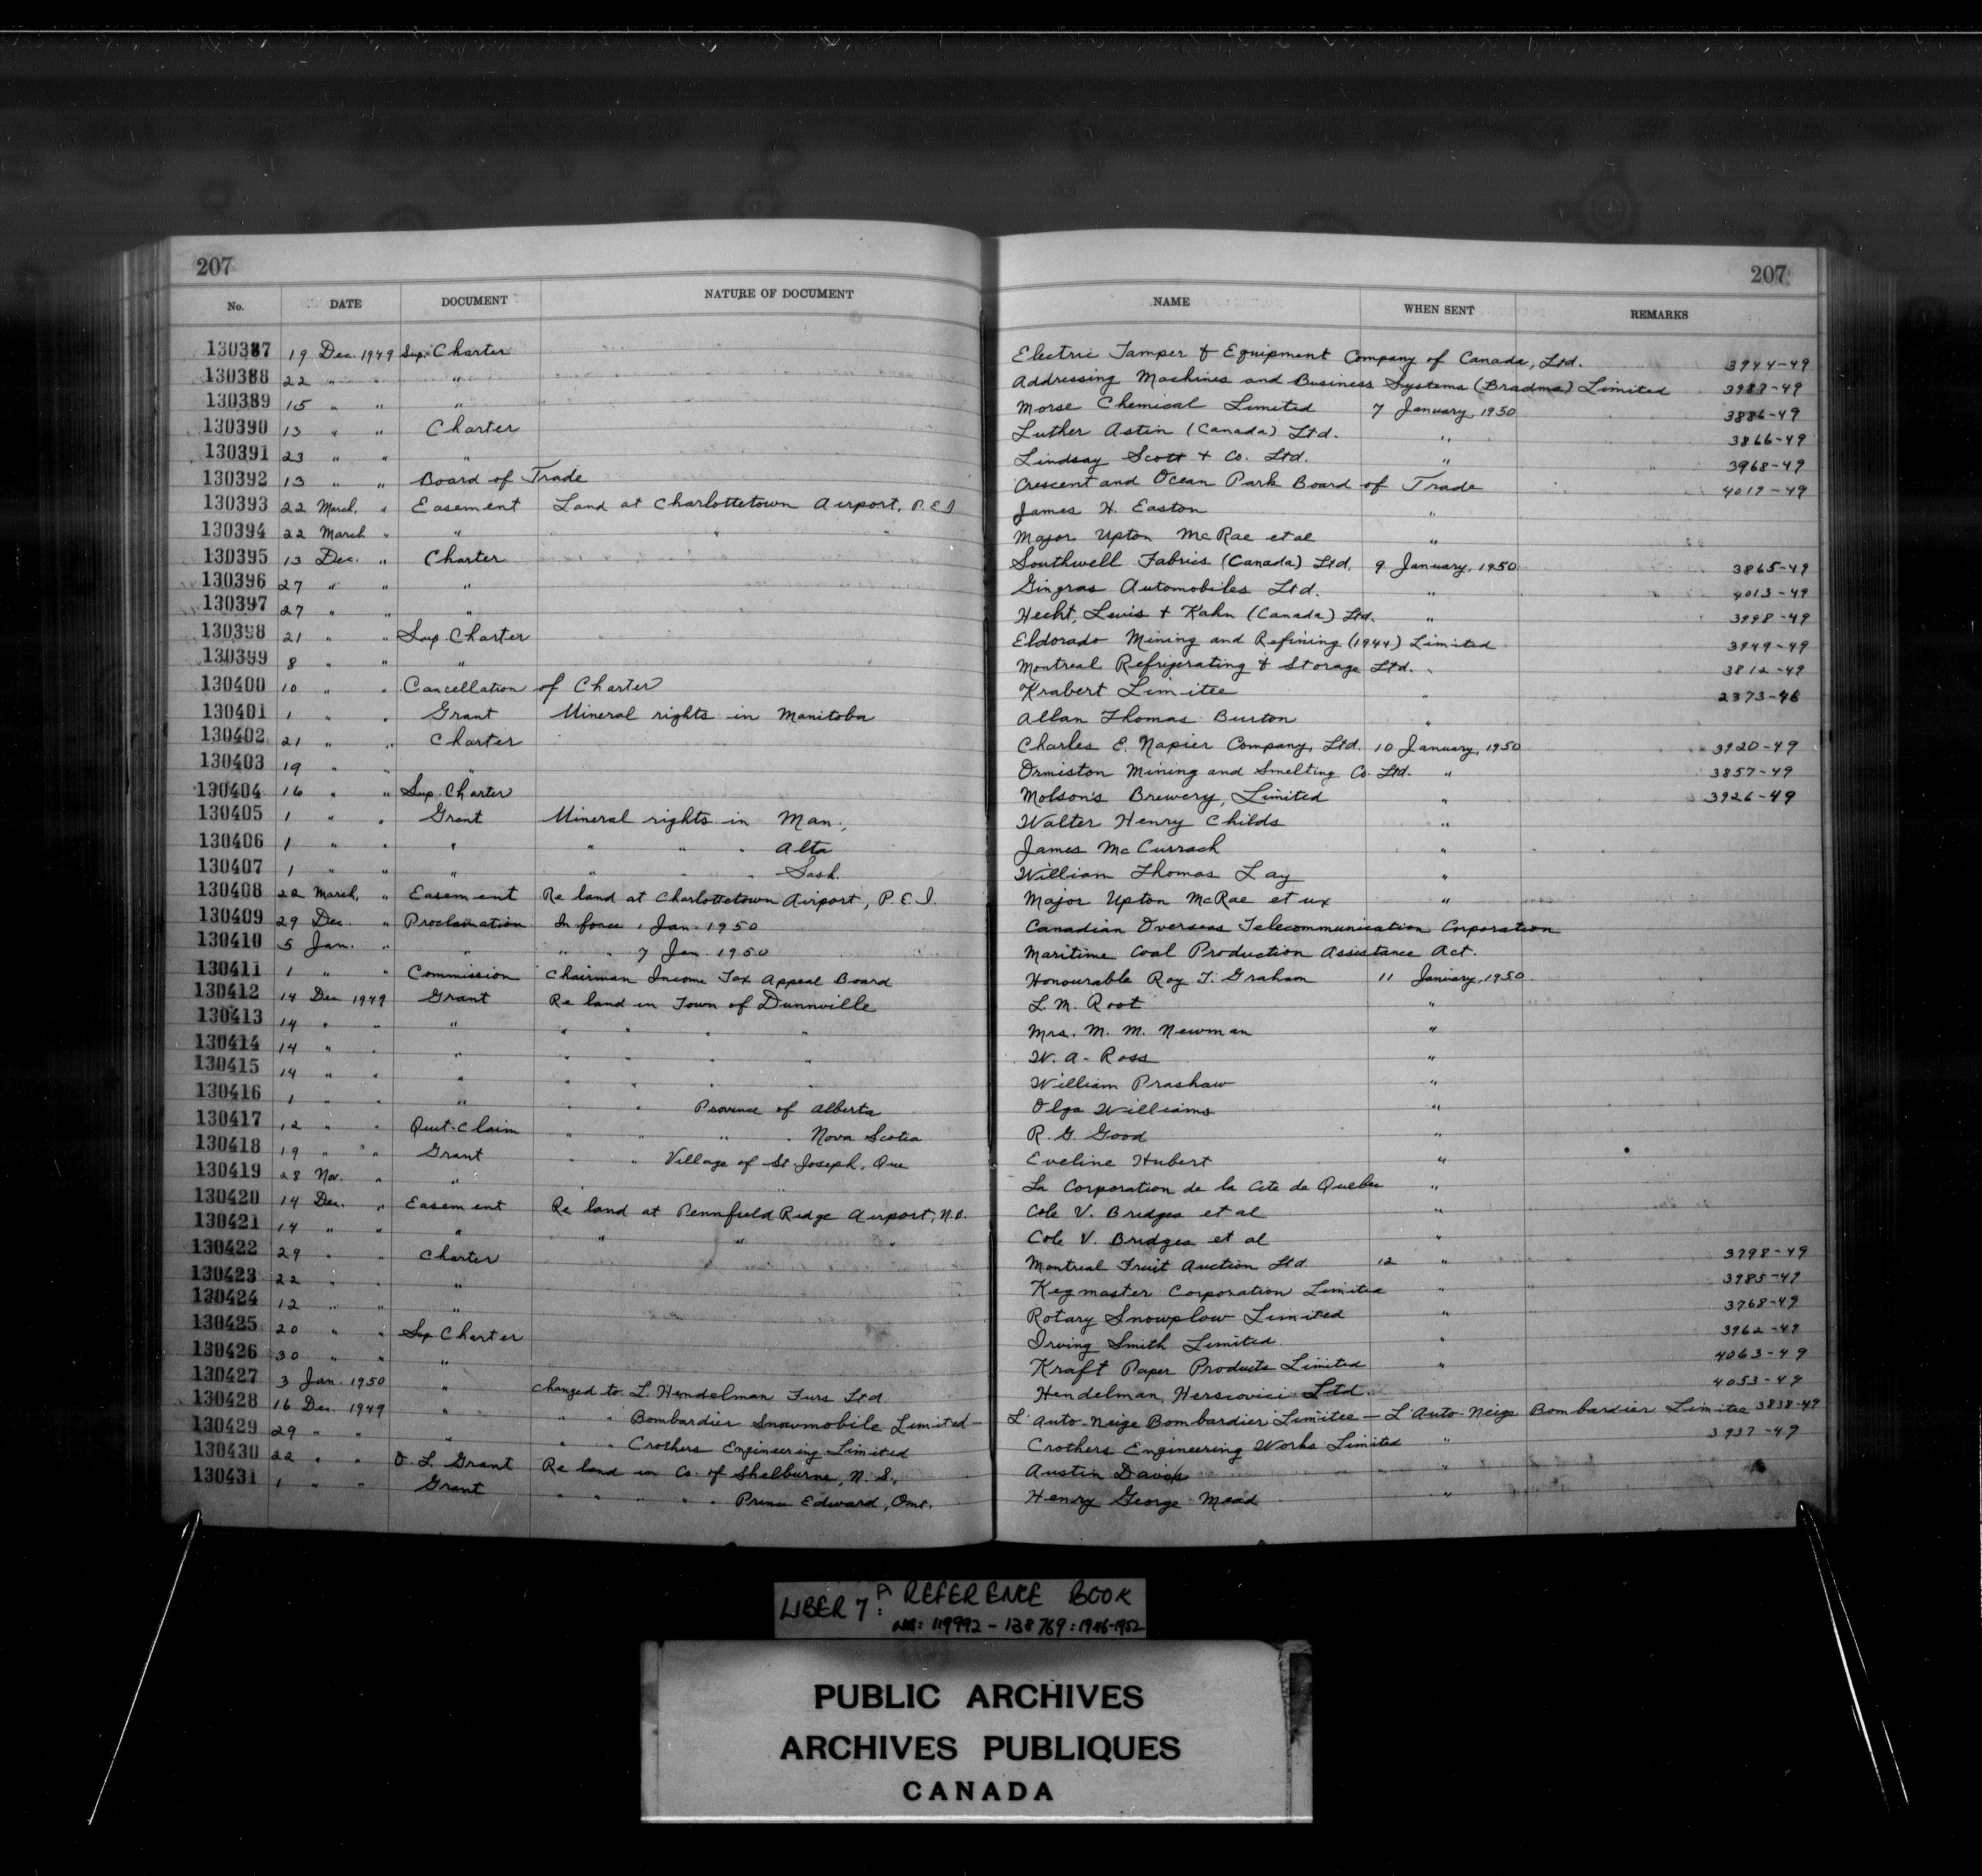 207 207
No. DATE DOCUMENT NATURE OF DOCUMENT NAME WHEN SENT REMARKS
130387 19 Dec. 1949 Sup. Charter Electric Tamper & Equipment Company of Canada, Ltd. 3944-49
130388 22 " " " Addressing Machines and Business Systems (Bradma) Limited 3987-49
130389 15 " " " Morse Chemical Limited 7 January, 1950 3886-49
130390 13 " " Charter Luther Astin (Canada) Ltd. " 3866-49
130391 23 " " " Lindsay Scott & Co. Ltd. " 3968-49
130392 13 " " Board of Trade Crescent and Ocean Park Board of Trade 4019-49
130393 22 March, " Easement Land at Charlottetown Airport, P.E.I James H. Easton "
130394 22 March " " " " Major Upton McRae et al "
130395 13 Dec. " Charter Southwell Fabrics (Canada) Ltd. 9 January, 1950 3865-49
130396 27 " " " Gingras Automobiles Ltd. " 4013-49
130397 27 " " " Hecht, Lewis & Kahn (Canada) Ltd. " 3998-49
130398 21 " " Sup. Charter Eldorado Mining and Refining (1944) Limited 3949-49
130399 8 " " " Montreal Refrigerating & Storage Ltd. " 3812-49
130400 10 " " Cancellation of Charter Krabert Limitee " 2373-46
130401 1 " " Grant Mineral rights in Manitoba Allan Thomas Burton "
130402 21 " " Charter Charles E. Napier Company, Ltd. 10 January, 1950 3920-49
130403 19 " " " Ormiston Mining and Smelting Co. Ltd. " 3857-49
130404 16 " " Sup. Charter Molson's Brewery, Limited " 3926-49
130405 1 " " Grant Mineral rights in Man., Walter Henry Childs "
130406 1 " " " " " " Alta James McCurrach "
130407 1 " " " " " " Sask. William Thomas Lay "
130408 22 March, " Easement Re land at Charlottetown Airport, P.E.I. Major Upton McRae et ux "
130409 29 Dec. " Proclamation In force 1 Jan. 1950 Canadian Overseas Telecommunication Corporation
130410 5 Jan. " " " " 7 Jan. 1950 Maritime Coal Production Assistance Act.
130411 1 " " Commission Chairman Income Tax Appeal Board Honourable Roy T. Graham 11 January, 1950
130412 14 Dec. 1949 Grant Re land in Town of Dunnville L. M. Root "
130413 14 " " " " " " " Mrs. M. M. Newman "
130414 14 " " " " " " " W. A. Ross "
130415 14 " " " " " " " William Prashaw "
130416 1 " " " " " Province of Alberta Olga Williams "
130417 12 " " Quit-Claim " " " " Nova Scotia R. G. Good "
130418 19 " " Grant " " Village of St. Joseph, Que Eveline Hubert "
130419 28 Nov. " " " " La Corporation de la Cite de Quebec "
130420 14 Dec. " Easement Re land at Pennfield Ridge Airport, N.B. Cole V. Bridges et al "
130421 14 " " " " " " Cole V. Bridges et al "
130422 29 " " Charter Montreal Fruit Auction Ltd 12 " 3798-49
130423 22 " " " Kegmaster Corporation Limited " 3985-49
130424 12 " " " Rotary Snowplow Limited " 3768-49
130425 20 " " Sup. Charter Irving Smith Limited " 3962-49
130426 30 " " " Kraft Paper Products Limited " 4063-49
130427 3 Jan. 1950 " Changed to L. Hendelman Furs Ltd. Hendelman, Herscovici Ltd. 4053-49
130428 16 Dec. 1949 " " " Bombardier Snowmobile Limited - L'Auto-Neige Bombardier Limitee - L'Auto-Neige Bombardier Limitee 3838-49
130429 29 " " " " " Crothers Engineering Limited Crothers Engineering Works Limited " 3937-49
130430 22 " " O. L. Grant Re land in Co. of Shelburne, N. S., Austin Davis "
130431 1 " " Grant " " " " " Prince Edward, Ont. Henry George Mead "
LIBER 7A: REFERENCE BOOK
NO: 119992 - 138769: 1946-1952
PUBLIC ARCHIVES
ARCHIVES PUBLIQUES
CANADA